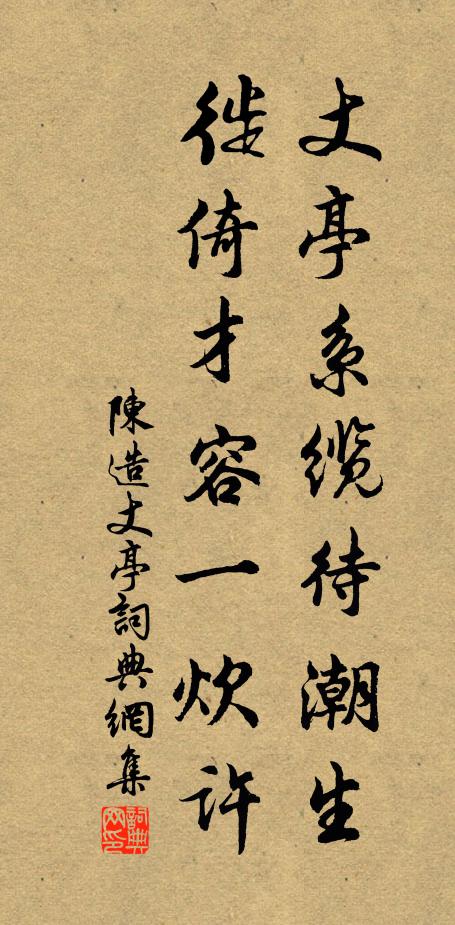 丈亭系缆待潮生
徙倚才容一炊许
陳造丈亭詞典網集
詞典网印